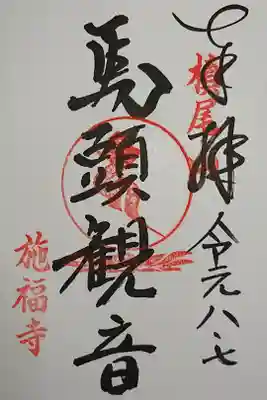 奉拝
槇尾山
令元八・七
馬頭観音
施福寺